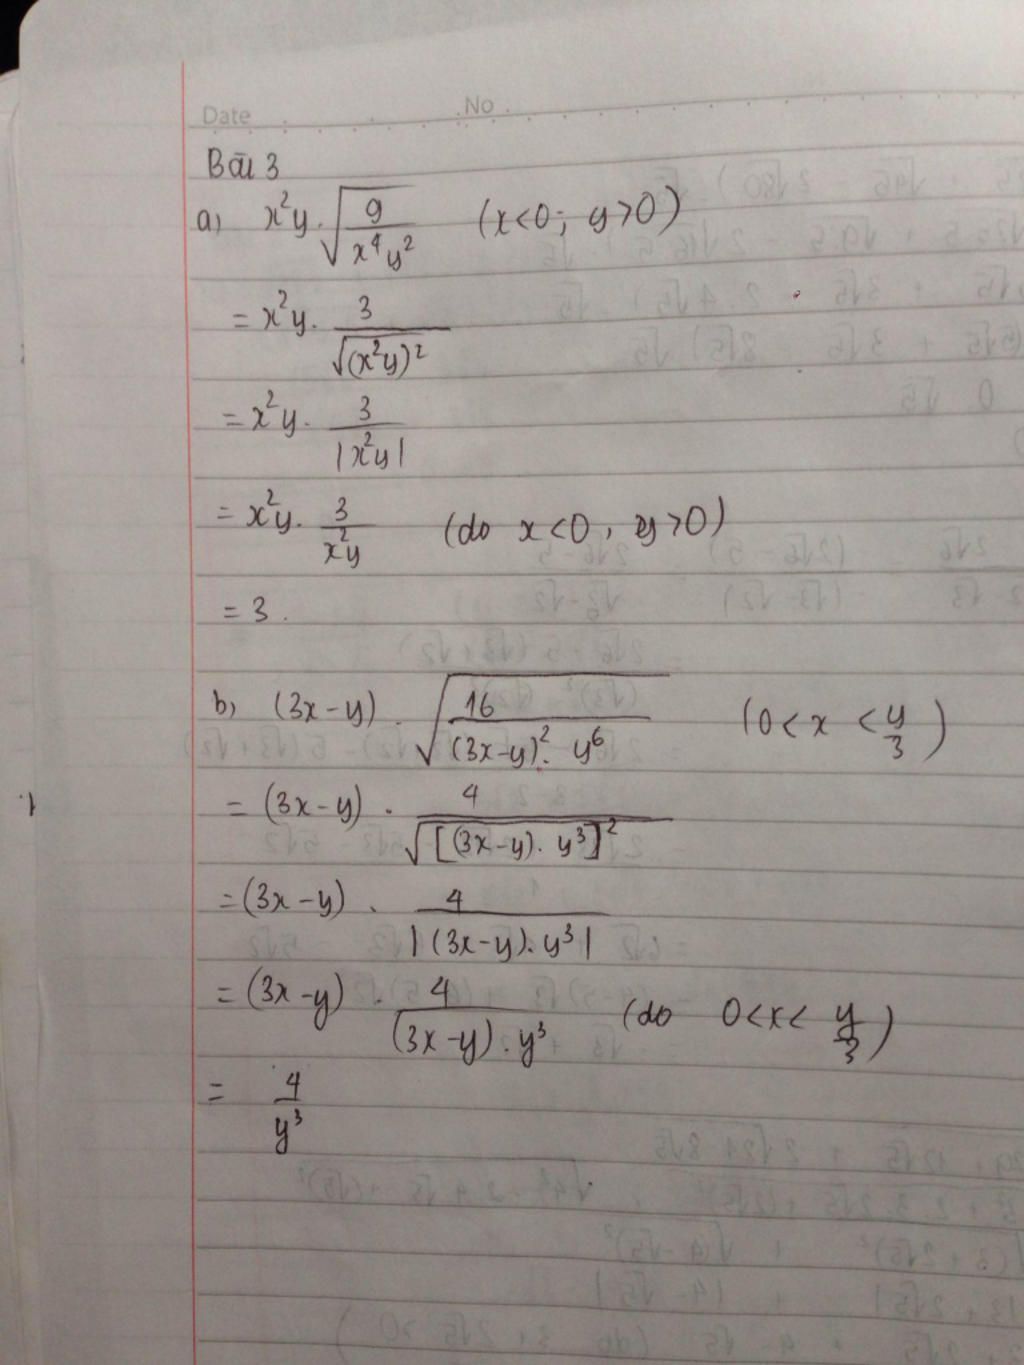 Date No
Bài 3
a) x²y.√(9/(x⁴y²)) (x<0; y>0)
= x²y. 3/√((x²y)²)
= x²y. 3/|x²y|
= x²y. 3/(x²y) (do x<0, y>0)
= 3.
b) (3x-y). √(16/((3x-y)². y⁶)) (0<x<y/3)
= (3x-y) . 4/√([(3x-y). y³]²)
= (3x-y) . 4/|(3x-y). y³|
= (3x-y) . 4/((3x-y). y³) (do 0<x<y/3)
= 4/y³